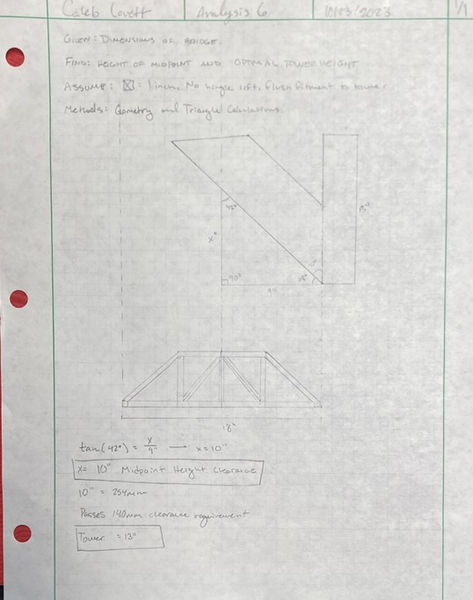 Caleb Lovett Analysis 6 10/03/2023 1/1
Given: Dimensions of bridge.
Find: Height of midpoint and optimal tower height
Assume: linear, No hinge soft, flush fitment to tower
Methods: Geometry and Triangle Calculations.
42°
x"
13"
90°
48°
9"
18"
tan(42°) = x/9" → x=10"
x= 10" Midpoint Height Clearance
10" = 254mm
Passes 140mm clearance requirement
Tower = 13"